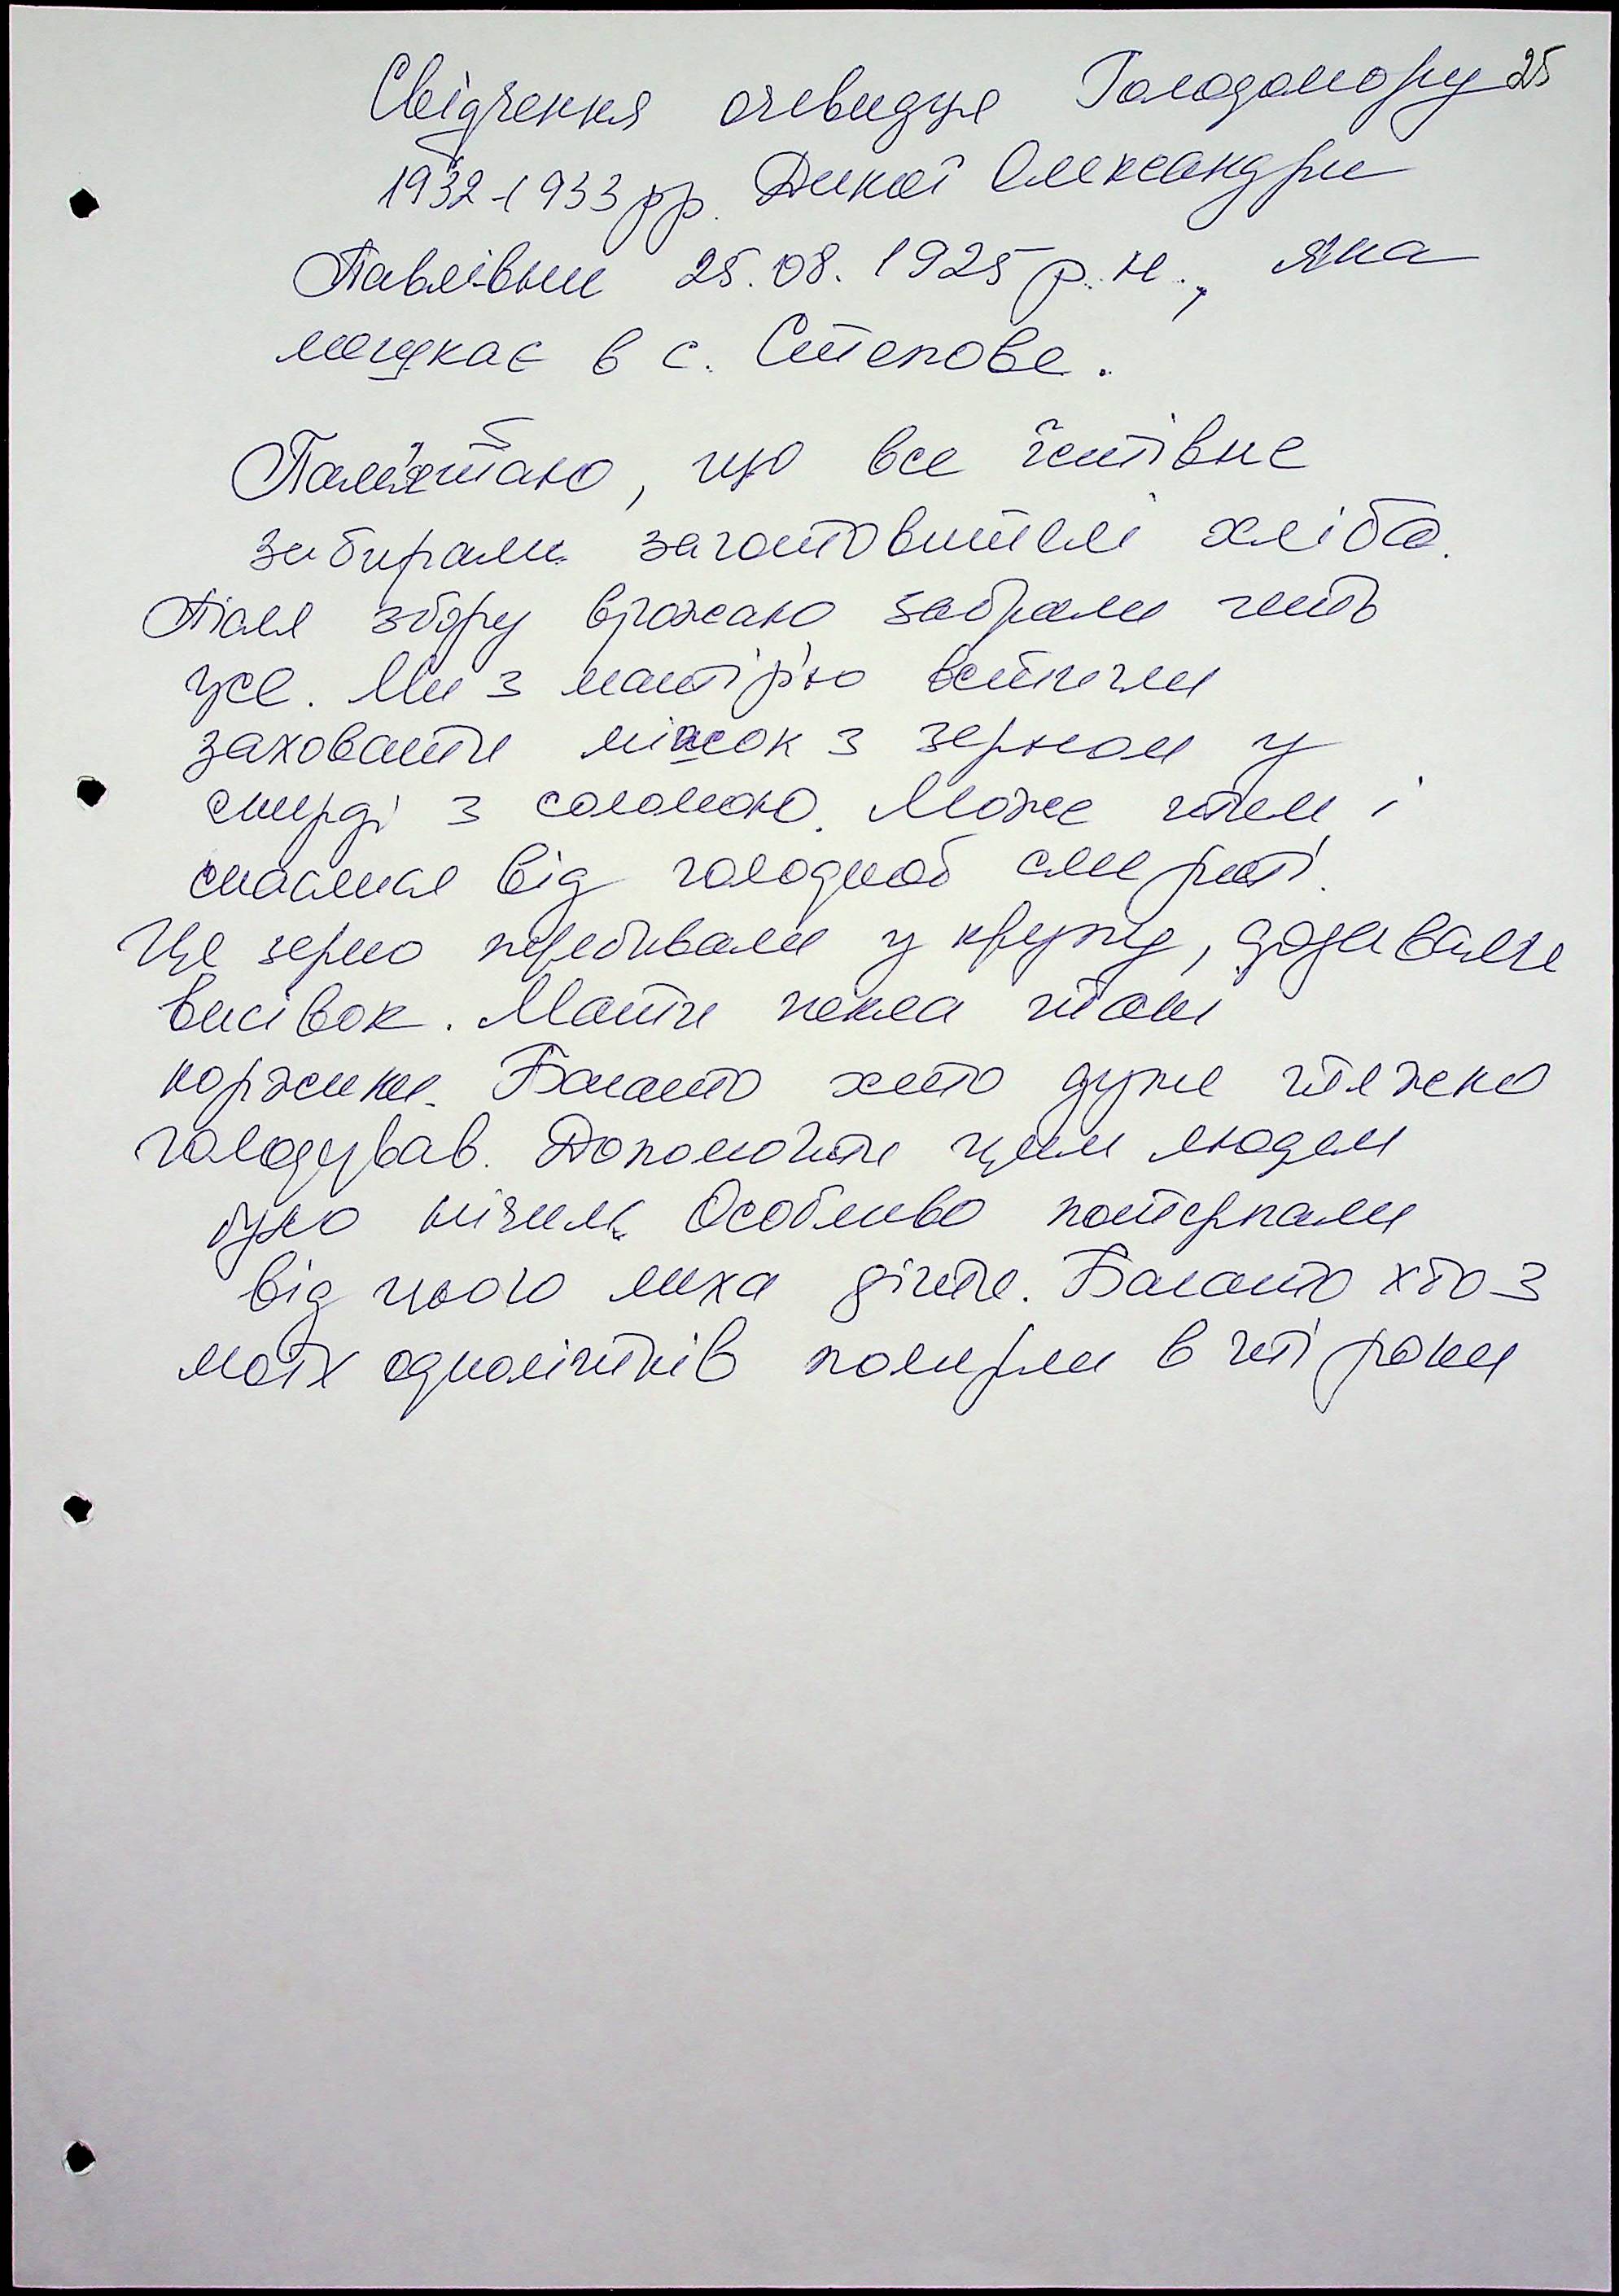 Свідчення очевидця Голодомору 25
1932-1933 рр. Дикої Олександри
Павлівни 25.08.1925 р.н., яка
мешкає в с. Степове.
Пам'ятаю, що все їстівне
забирали заготовителі хліба.
Після збору врожаю забрали геть
усе. Ми з матір'ю встигли
заховати мішок з зерном у
скирді з соломою. Може цим і
спаслися від голодної смерті.
Це зерно перебивали у крупу, додавали
висівок. Мати пекла такі
коржики. Багато хто дуже тяжко
голодував. Допомогти цим людям
було нічим. Особливо потерпали
від цього лиха діти. Багато хто з
моїх однолітків померли в ті роки